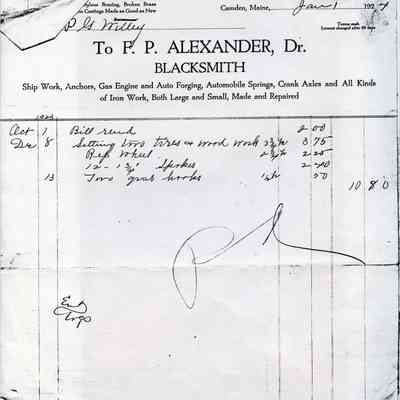 Brazing, Broken Brass
Castings Made as Good as New
Camden, Maine, Jan 1 1924
P. G. Willey
Terms cash
Interest charged after 30 days
To F. P. ALEXANDER, Dr.
BLACKSMITH
Ship Work, Anchors, Gas Engine and Auto Forging, Automobile Springs, Crank Axles and All Kinds
of Iron Work, Both Large and Small, Made and Repaired
Oct 1 Bill rend 2 00
Dec 8 Setting two tires & wood work 3 75
Rep Wheel
12 - Spokes 2 40
13 Two grab hooks 50
10 80